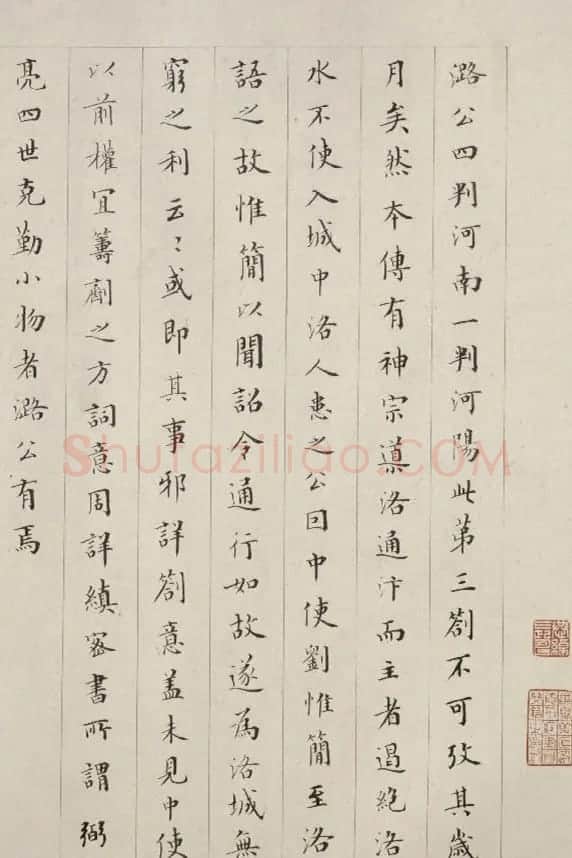 潞公四判河南一判河陽此第三劄不可攷其歲
月矣然本傳有神宗導洛通汴而主者遏絶洛
水不使入城中洛人患之公回中使劉惟簡至洛
語之故惟簡以聞詔令通行如故遂為洛城無
窮之利云〻或即其事邪詳劄意蓋未見中使
以前權宜籌劑之方詞意周詳縝密書所謂弼
亮四世克勤小物者潞公有焉
Shufaziliao.COM